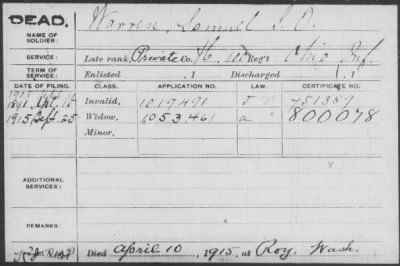 DEAD.
Warren, Samuel
NAME OF SOLDIER:
SERVICE: Late rank, Private Co. H, 100 Reg't Ohio Inf.
TERM OF SERVICE: Enlisted , 1 Discharged , 1
DATE OF FILING. CLASS. APPLICATION NO. LAW. CERTIFICATE NO.
Invalid, 1019491 751387
1915 Sept. 25 Widow, 1053,461 a 800078
Minor,
ADDITIONAL SERVICES:
REMARKS:
Died April 10, 1915, at Roy, Wash.